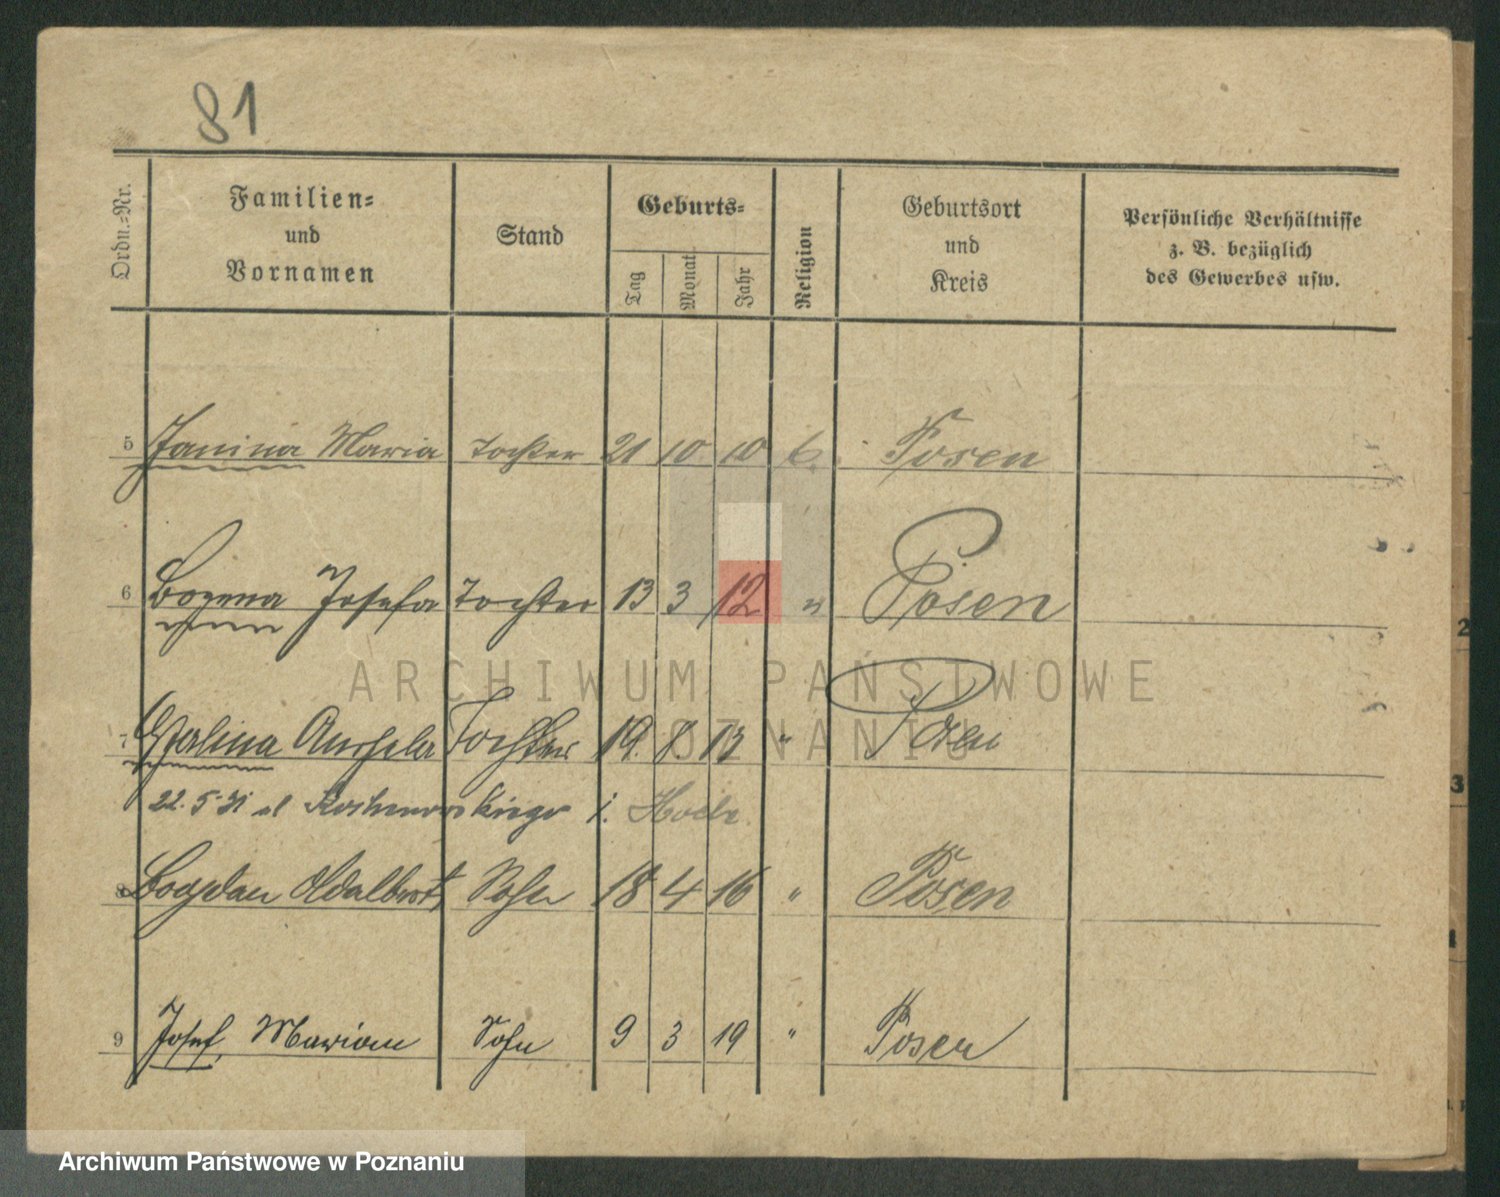 81
Ordn.=Nr.
Familien=
und
Vornamen
Stand
Geburts=
Tag
Monat
Jahr
Religion
Geburtsort
und
Kreis
Persönliche Verhältnisse
z. B. bezüglich
des Gewerbes usw.
5 Janina Maria Tochter 21 10 10 Posen
6 Bozena Josefa Tochter 13 3 12 " Posen
7 Tochter 19. 8 13 " Posen
22. 5. 31 i.
8 Bogdan Adalbert Sohn 18 4 16 " Posen
9 Josef, Marian Sohn 9 3 19 " Posen
ARCHIWUM PAŃSTWOWE
W POZNANIU
Archiwum Państwowe w Poznaniu